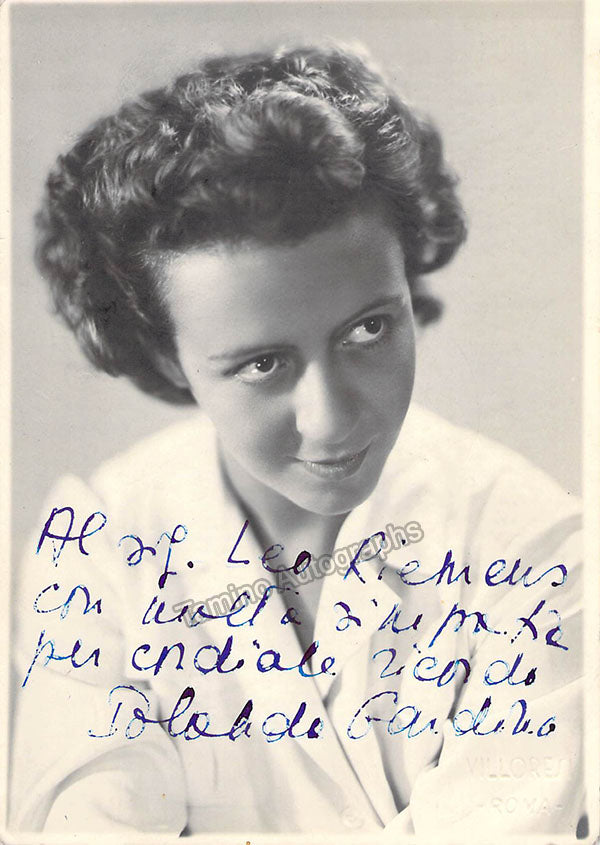 Al sig. Leo Riemens
con molta simpatia
per cordiale ricordo
Jolanda Gardino
Tamino Autographs
VILLORESI
-ROMA-